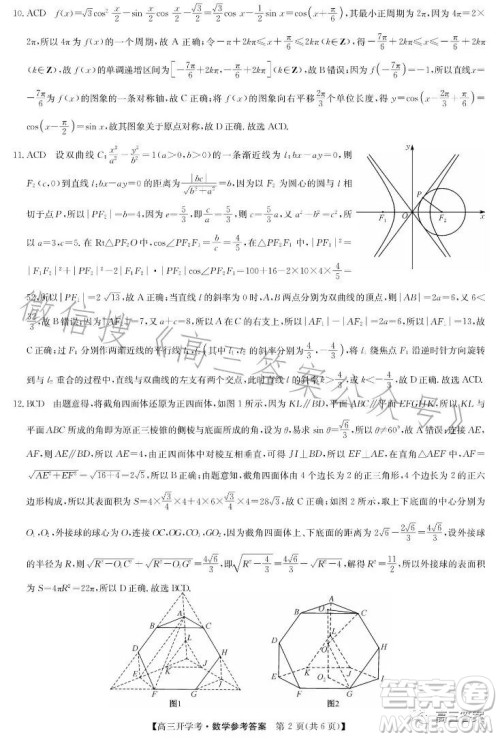 10. ACD f(x)=√3cos²x/2-sin x/2 cos x/2-√3/2=√3/2cos x-1/2sin x=cos(x+π/6), 其最小正周期为 2π, 因为 4π=2×
2π, 所以 4π 为 f(x) 的一个周期, 故 A 正确; 令-π+2kπ≤x+π/6≤2kπ(k∈Z), 得-7π/6+2kπ≤x≤-π/6+2kπ
(k∈Z), 故 f(x) 的单调递增区间为[-7π/6+2kπ,-π/6+2kπ](k∈Z), 故 B 错误; 因为 f(-7π/6)=-1, 所以直线 x=
-7π/6 为 f(x) 的图象的一条对称轴, 故 C 正确; 将 f(x) 的图象向右平移 个单位长度, 得 y=
cos(x-2π/3+π/6)=cos(x-π/2)=sin x, 故其图象关于原点对称, 故 D 正确. 故选 ACD.
11. ACD 设双曲线 C:x²/a²-y²/b²=1(a>0,b>0)的一条渐近线为 l:bx-ay=0, 则
F₂(c,0)到直线 l:bx-ay=0 的距离为|bc|/√(b²+a²)=b, 因为以 F₂ 为圆心的圆与 l 相
切于点 P, 所以|PF₂|=b=4, 因为 e=5/3, 即 c/a=5/3, 则 c=5/3a, 又 a²=c²-b², 所
以 a=3,c=5. 在 Rt△PF₂O 中, cos∠PF₂F₁=|PF₂|/|OF₂|=4/5, 在△F₁PF₂ 中, |PF₁|²=
|F₁F₂|²+|PF₂|²-2|F₁F₂|·|PF₂|cos∠PF₂F₁=100+16-2×10×4×4/5=
52, 所以|PF₁|=2√13, 故 A 正确; 当直线 l 的斜率为 0 时, 两交点为双曲线的顶点, 则|AB|=2a=6, 又 6<
, 故 B 错误; 因为|AF₁|=7<a+c=8, 所以 A 在 C 的右支上, 所以|AF₁|-|AF₂|=2a=6, 所以|AF₂|=1, 故 C
正确; 过点 F₁ 分别作两渐近线的平行线 l₁,l₂(其中 l₁,l₂ 的斜率分别为4/3,-4/3), 将 l₁ 绕焦点 F₁ 沿逆时针旋转
到与 l₂ 重合的过程中, 直线与双曲线左支有两个交点, 此时直线的斜率 k>4/3, 或 k<-4/3, 故 D 正确. 故选 ACD.
12. BCD 由题意得, 将截角四面体还原为正四面体, 如图所示, 因为 KL∥BD, 平面 ABC 与平面 EFGHK, 所以 KL 与
平面 ABC 所成的角即为正三棱锥的侧棱与底面所成的角, 即为 θ, 易求 sin θ=√6/3, 所以 θ≠60°, 故 A 错误; 连接 AF,
AE, 由正四面体中对棱互相垂直, 易知 BD⊥AC, 因为 BD∥EF, 所以 EF⊥AE, 所以 AF=
√(AE²+EF²)=√(16+4)=2√5, 所以 B 正确; 由题意可知, 截角四面体由 4 个边长为 2 的正三角形, 4 个边长为 2 的正六
边形构成, 所以 S=4×√3/4×4+4×6×√3/4×4=28√3, 故 C 正确; 取上下底面的中心分别为
O₁,O₂, 外接球的球心为 O, 连接 OC,OG,CO₁,GO₂, 因为截角四面体上、下底面的距离为 2√6-2√6/3=4√6/3, 设外接球
的半径为 R, 则√(R²-O₁C²)+√(R²-O₂G²)=4√6/3, 即√(R²-4/3)=4√6/3-√(R²-4), 解得 R²=11/2, 所以外接球的表面积
为 S=4πR²=22π, 所以 D 正确. 故选 BCD.
图1
图2
【高三开学考·数学参考答案 第 2 页(共 6 页)】
微信搜《高三答案公众号》
高三答案